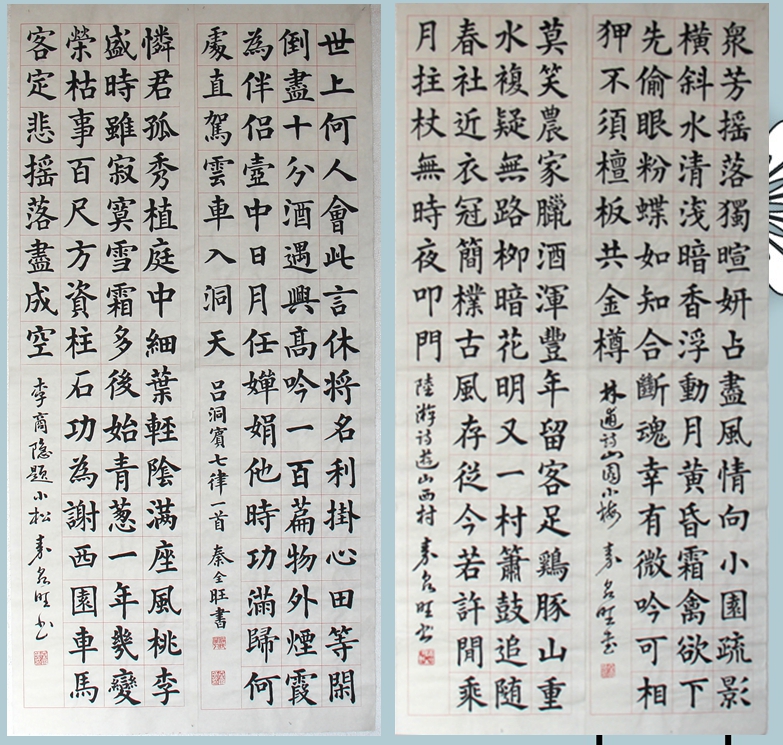 衆芳摇落獨暄妍占盡風情向小園疏影
橫斜水清浅暗香浮動月黄昏霜禽欲下
先偷眼粉蝶如知合斷魂幸有微吟可相
狎不須檀板共金樽 林逋詩山園小梅 秦全旺書
莫笑農家臘酒渾豐年留客足鷄豚山重
水複疑無路柳暗花明又一村簫鼓追随
春社近衣冠簡樸古風存從今若許閒乘
月拄杖無時夜叩門 陸游詩遊山西村 秦全旺書
世上何人會此言休将名利掛心田等閑
倒盡十分酒遇興高吟一百篇物外煙霞
為伴侣壺中日月任嬋娟他時功滿歸何
處直駕雲車入洞天 吕洞賓七律一首 秦全旺書
憐君孤秀植庭中細葉輕陰满座風桃李
盛時雖寂寞雪霜多後始青葱一年幾變
榮枯事百尺方資柱石功為謝西園車馬
客定悲摇落盡成空 李商隐題小松 秦全旺書